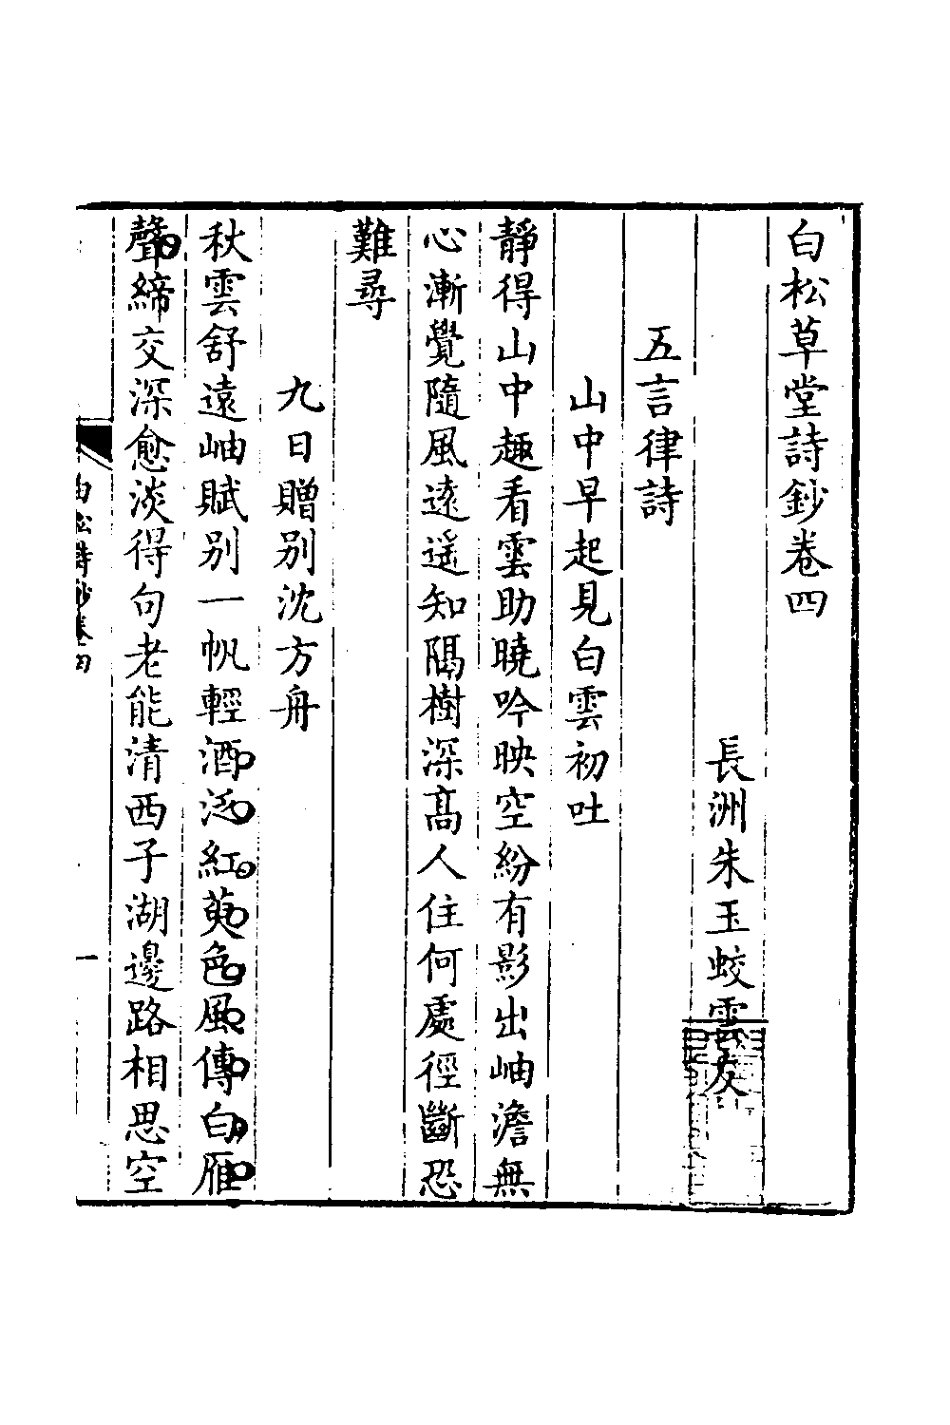 白松草堂詩鈔卷四
長洲朱玉蛟雲友
五言律詩
山中早起見白雲初吐
靜得山中趣看雲助曉吟映空紛有影出岫澹無
心漸覺隨風遠遥知隔樹深高人住何處徑斷恐
難尋
九日贈别沈方舟
秋雲舒遠岫賦别一帆輕酒泛紅萸色風傳白雁
聲締交深愈淡得句老能清西子湖邊路相思空
白松詩鈔卷四
一